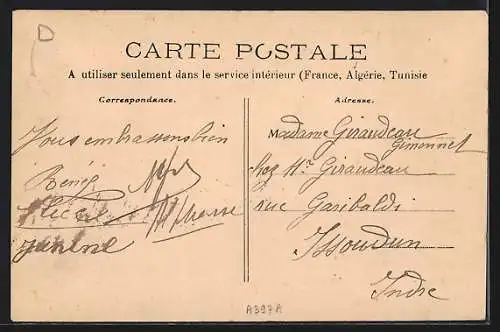 D
CARTE POSTALE
A utiliser seulement dans le service intérieur (France, Algérie, Tunisie
Correspondance.
Adresse.
Vous embrassons bien
René
Alice
Alphonse
Janine
Madame Giraudeau
Gimonnet
chez Mr Giraudeau
rue Garibaldi
Issoudun
Indre
A397A